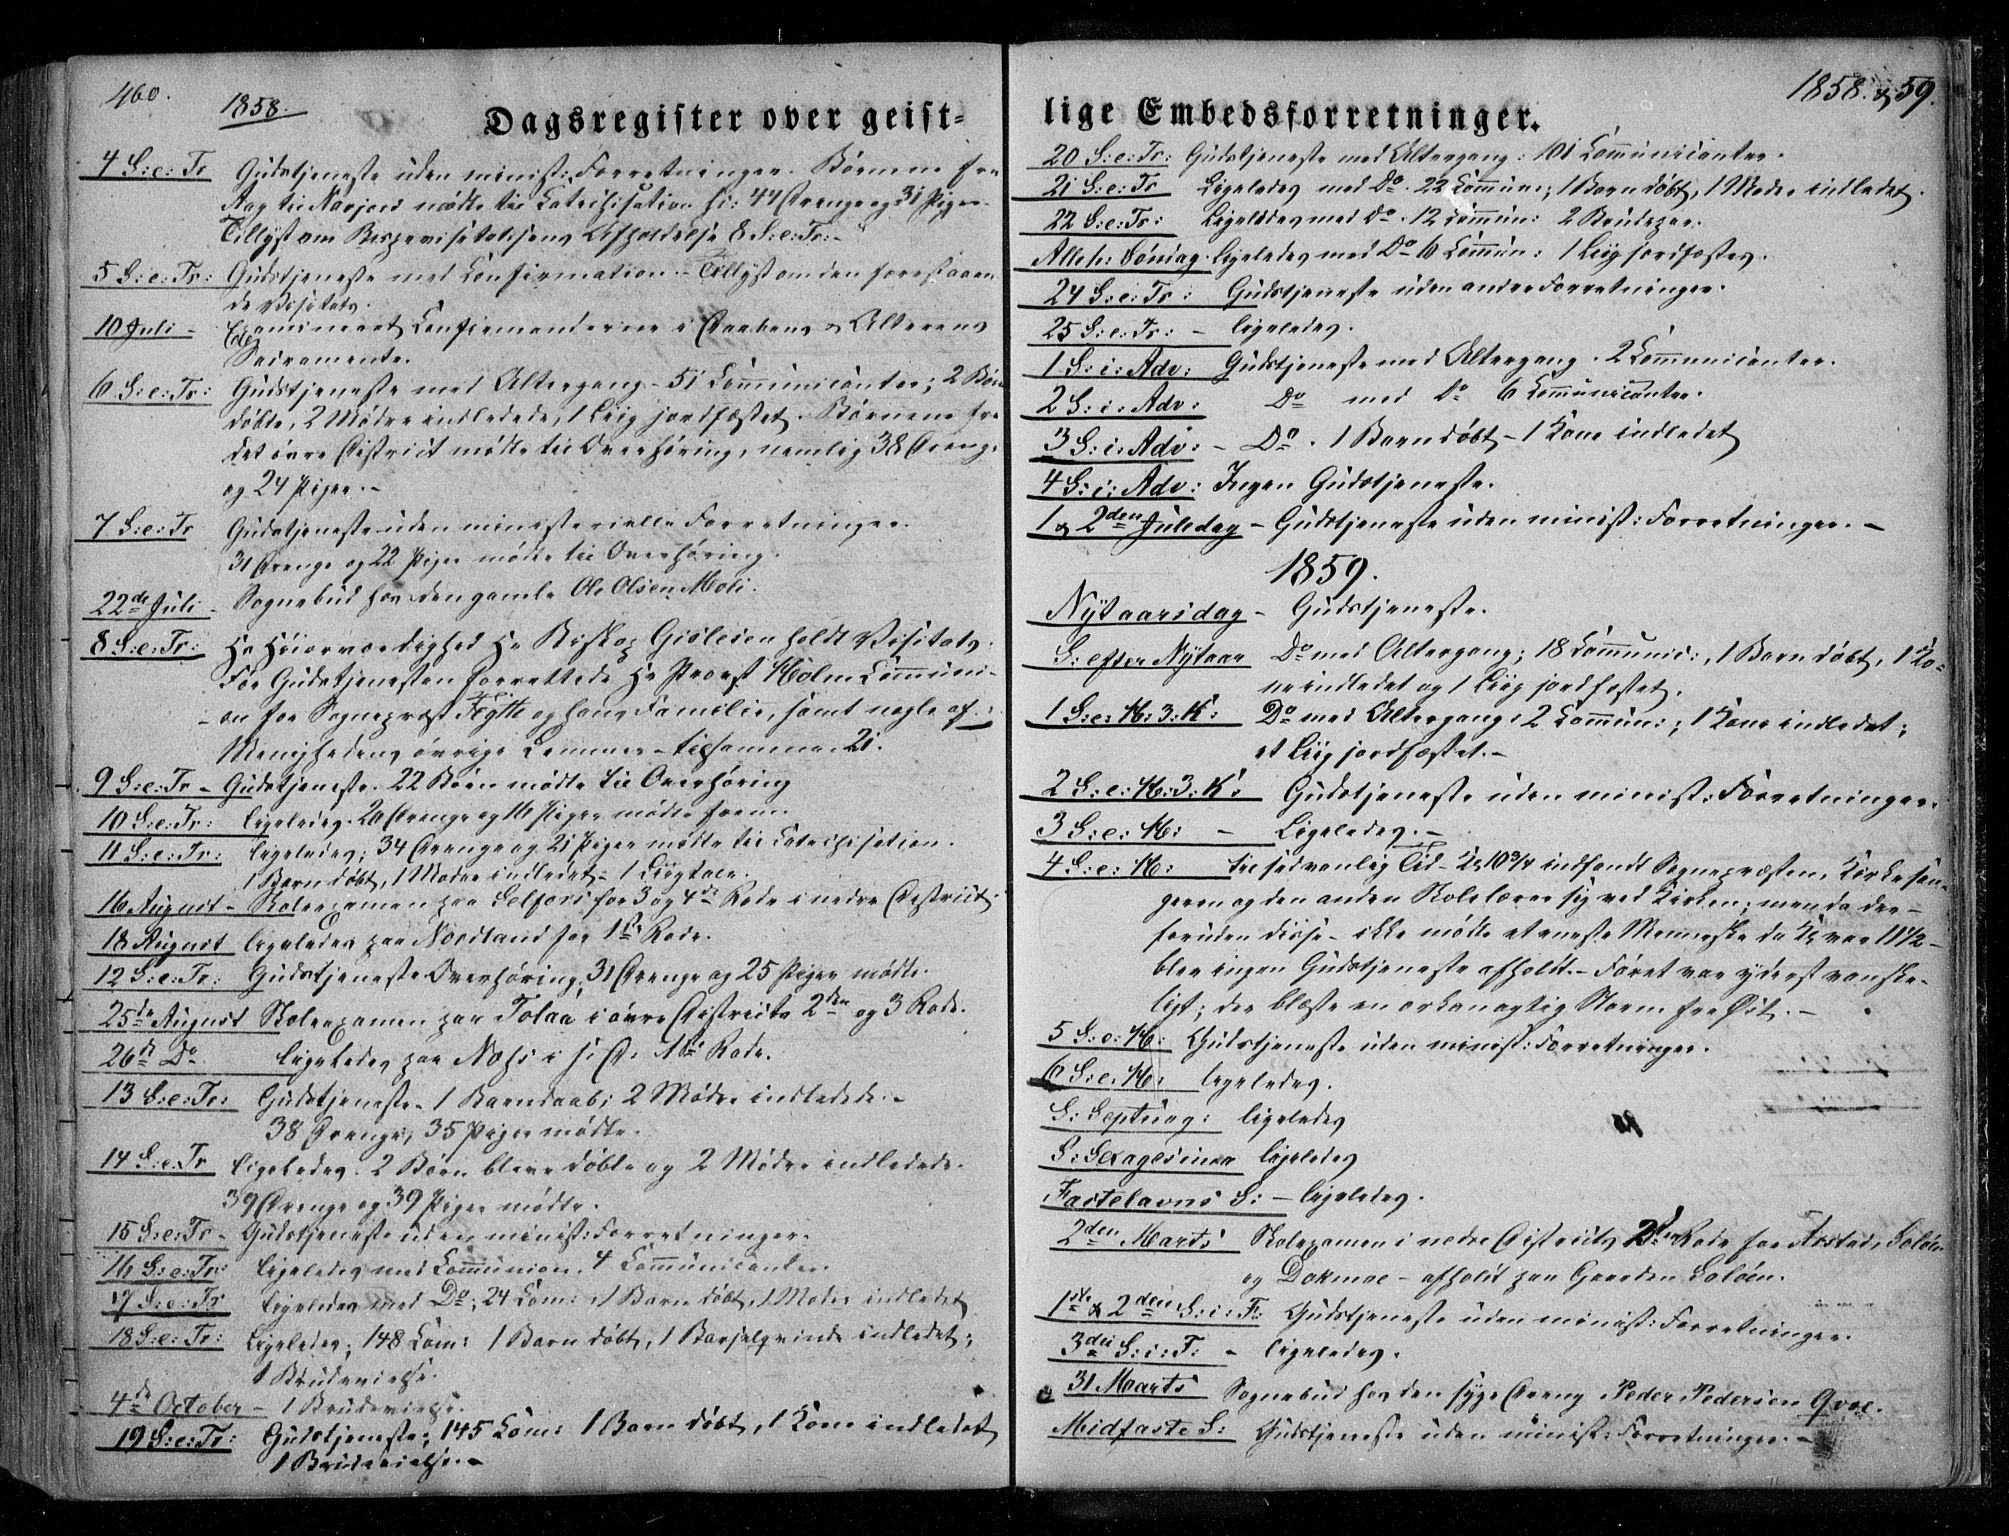 460.
1858.
Dagsregister over geist=
4 S: e: Tr Gudstjeneste uden minist: Forretninger. Børnene fra
Aag til Navjord mødte til Catechisation hi: 44 Drenge og 31 Piger.
Tillyst om Bispevisitatsens Afholdelse 8 S: e: Tr: -
5 S: e: Tr: Gudstjeneste med Confirmation. - Tillyst om den forestaaen
de Visitats.
10 Juli - Examineret Confirmanderne i Daabens & Alterens
Sacramente.
6 S: e: Tr: Gudstjeneste med Altergang - 51 Communicanter; 2 Børn
døbte, 2 Mødre indledede, 1 Liig jordfæstet. Børnene fra
det øvre District mødte til Overhøring, nemlig 38 Drenge
og 24 Piger. -
7 S: e: Tr Gudstjeneste uden ministerielle Forretninger.
31 Drenge og 22 Piger mødte til Overhøring.
22de Juli - Sognebud hos den gamle Ole Olsen Moli.
8 S: e: Tr: Hs Høiærværdighed Hr Biskop Gislesen holdt Visitats.
Før Gudstjenesten forrettede Hr Provst Holm Communi-
on for Sognepræst Flytte og hans Familie, samt nogle af
Menighedens øvrige Lemmer - tilsammen 21.
9 S: e: Tr - Gudstjeneste. 22 Børn mødte til Overhøring
10 S: e: Tr: ligeledes. 20 Drenge og 16 Piger mødte frem.
11 S: e: Tr: ligeledes; 34 Drenge og 21 Piger mødte til Catechisation.
1 Barn døbt, 1 Moder indledet - 1 Liigtale.
16 August - Skoleexamen paa Selfors for 3 og 4de Rode i nedre District.
18 August ligeledes paa Nordland for 1ste Rode.
12 S: e: Tr: Gudstjeneste Overhøring; 31 Drenge og 25 Piger mødte.
25de August Skoleexamen paa Tolaa i øvre Districts 2den og 3 Rode.
26de Do. ligeledes paa Næss i s: D: 1ste Rode.
13 S: e: Tr: Gudstjeneste - 1 Barnedaab; 2 Mødre indledede. -
38 Drenge, 35 Piger mødte.
14 S: e: Tr ligeledes. 2 Børn bleve døbte og 2 Mødre indledede.
39 Drenge og 39 Piger mødte.
15 S: e: Tr - Gudstjeneste uden minist: Forretninger.
16 S: e: Tr: ligeledes med Communion. 4 Communicanter.
17 S: e: Tr ligeledes med Do; 24 Com: 1 Barn døbt, 1 Moder indledet
18 S: e: Tr: Ligeledes; 148 Com: 1 Barn døbt, 1 Barselqvinde indledet;
1 Brudevielse.
4de October - 1 Brudevielse.
19 S: e: Tr: Gudstjeneste; 145 Com: 1 Barn døbt, 1 Kone indledet
1 Brudevielse. -
1858. & 59.
lige Embedsforretninger.
20 S: e: Tr: Gudstjeneste med Altergang: 101 Communicanter.
21 S: e: Tr Ligeledes med Do. 22 Commun:, 1 Barn døbt, 1 Moder indledet.
22 S: e: Tr: Ligeledes med Do. 12 commun: 2 Brudepar.
Alleh: Søndag. ligeledes med Do 6 Commun: 1 Liig jordfæstes.
24 S: e: Tr: Gudstjeneste uden andre Forretninger.
25 S: e: Tr: - ligeledes.
1 S: i: Adv: Gudstjeneste med Altergang. 2 Communicanter.
2 S: i: Adv: Do med do 6 Communicanter.
3 S: i: Adv: - Do. 1 Barn døbt - 1 Kone indledet
4 S: i: Adv: Ingen Gudstjeneste.
1 & 2den Juledag - Gudstjeneste uden minist: Forretninger. -
1859.
Nytaarsdag - Gudstjeneste.
S: efter Nytaar Do med Altergang; 18 Communic:, 1 Barn døbt, 1 Ko-
ne indledet og 1 Liig jordfæstet.
1 S: e: H: 3: K: Do med Altergang: 2 Commun:; 1 Kone indledet;
et Liig jordfæstet. -
2 S: e: H: 3: K: Gudstjeneste uden minist: Forretninger.
3 S: e: H: - Ligeledes. -
4 S: e: H: Til sedvanlig Tid - Kl 10 3/4 indfandt Sognepræsten, Kirkesan-
geren og den anden Skolelærer sig ved Kirken; men da der -
foruden disse - ikke mødte et eneste Menneske da Kl var 11 1/2 -
blev ingen Gudstjeneste afholdt. - Føret var yderst vanske-
ligt; der blæste en orkanagtig Storm fra Øst. -
5 S: e: H: Gudstjeneste uden minist: Forretninger.
6 S: e: H: ligeledes.
S: Septuag: ligeledes
S: Sexagesima ligeledes
Fastelavns S: - ligeledes.
2den Marts Skoleexamen i nedre Districts 2den Rode for Arstad, Soløen
og Dokmoe - afholdt paa Gaarden Soløen.
1ste & 2den S: i: F: Gudstjeneste uden minist: Forretninger.
3die S: i: F: - ligeledes.
31 Marts Sognebud hos den syge Dreng Peder Pedersen Qvoe.
Midfaste S: Gudstjeneste uden minist: Forretninger. -